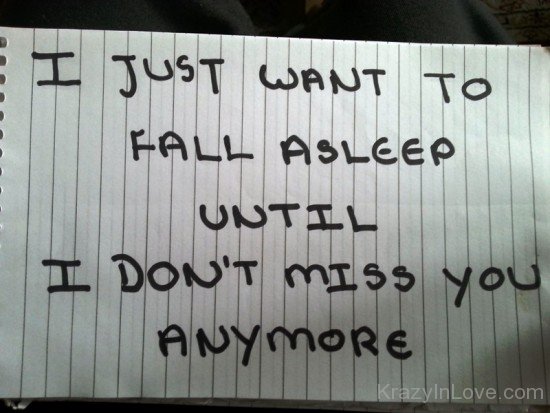 I JUST WANT TO
FALL ASLEEP
UNTIL
I DON'T MISS YOU
ANYMORE
KrazyInLove.com